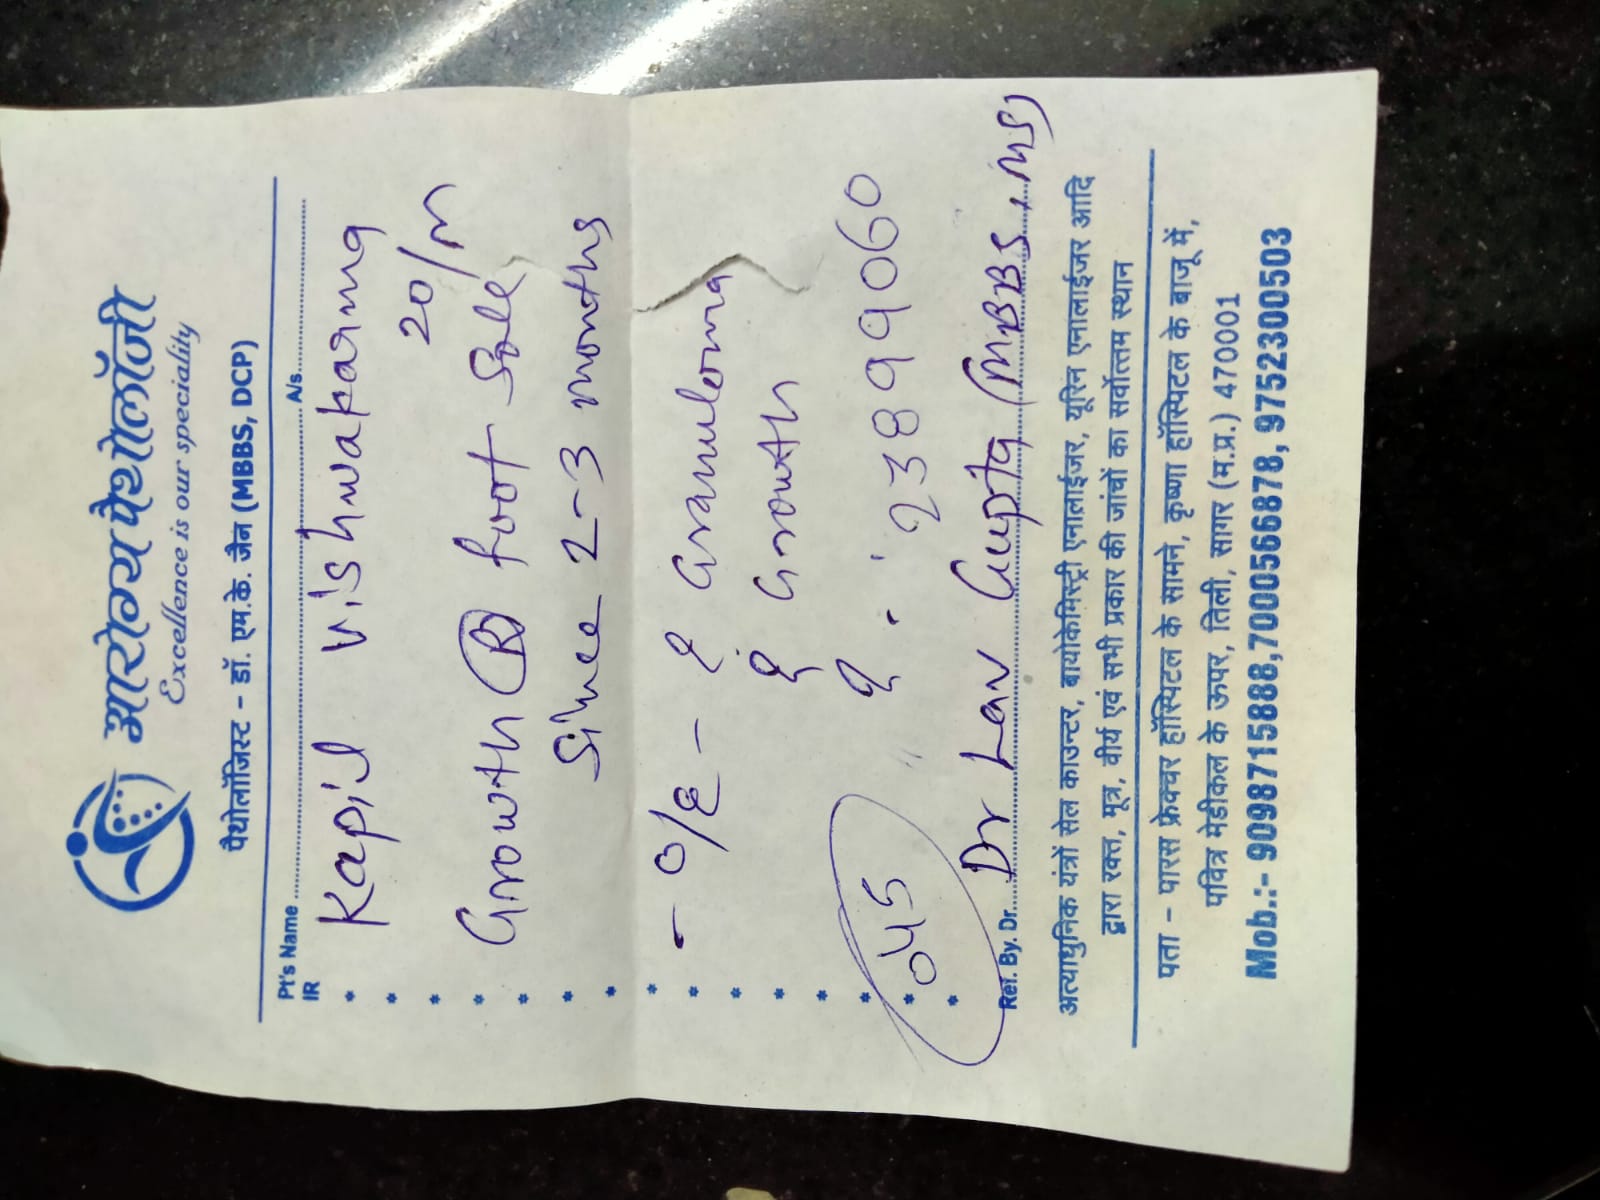 आरोग्य पैथोलॉजी
Excellence is our speciality
पैथोलॉजिस्ट - डॉ. एम.के. जैन (MBBS, DCP)
Pt's Name ........ A/s ........
IR
Kapil Vishwakarma
20/M
Growth (R) foot sole
Since 2-3 months
- O/E - ? Granuloma
? Growth
? 
923899060
045
Ref. By. Dr. Dr Lav Gupta (MBBS, MS)
अत्याधुनिक यंत्रों सेल काउन्टर, बायोकेमिस्ट्री एनालाईजर, यूरिन एनालाईजर आदि
द्वारा रक्त, मूत्र, वीर्य एवं सभी प्रकार की जांचों का सर्वोत्तम स्थान
पता - पारस फ्रेक्चर हॉस्पिटल के सामने, कृष्णा हॉस्पिटल के बाजू में,
पवित्र मेडीकल के ऊपर, तिली, सागर (म.प्र.) 470001
Mob.:- 9098715888,7000566878, 9752300503